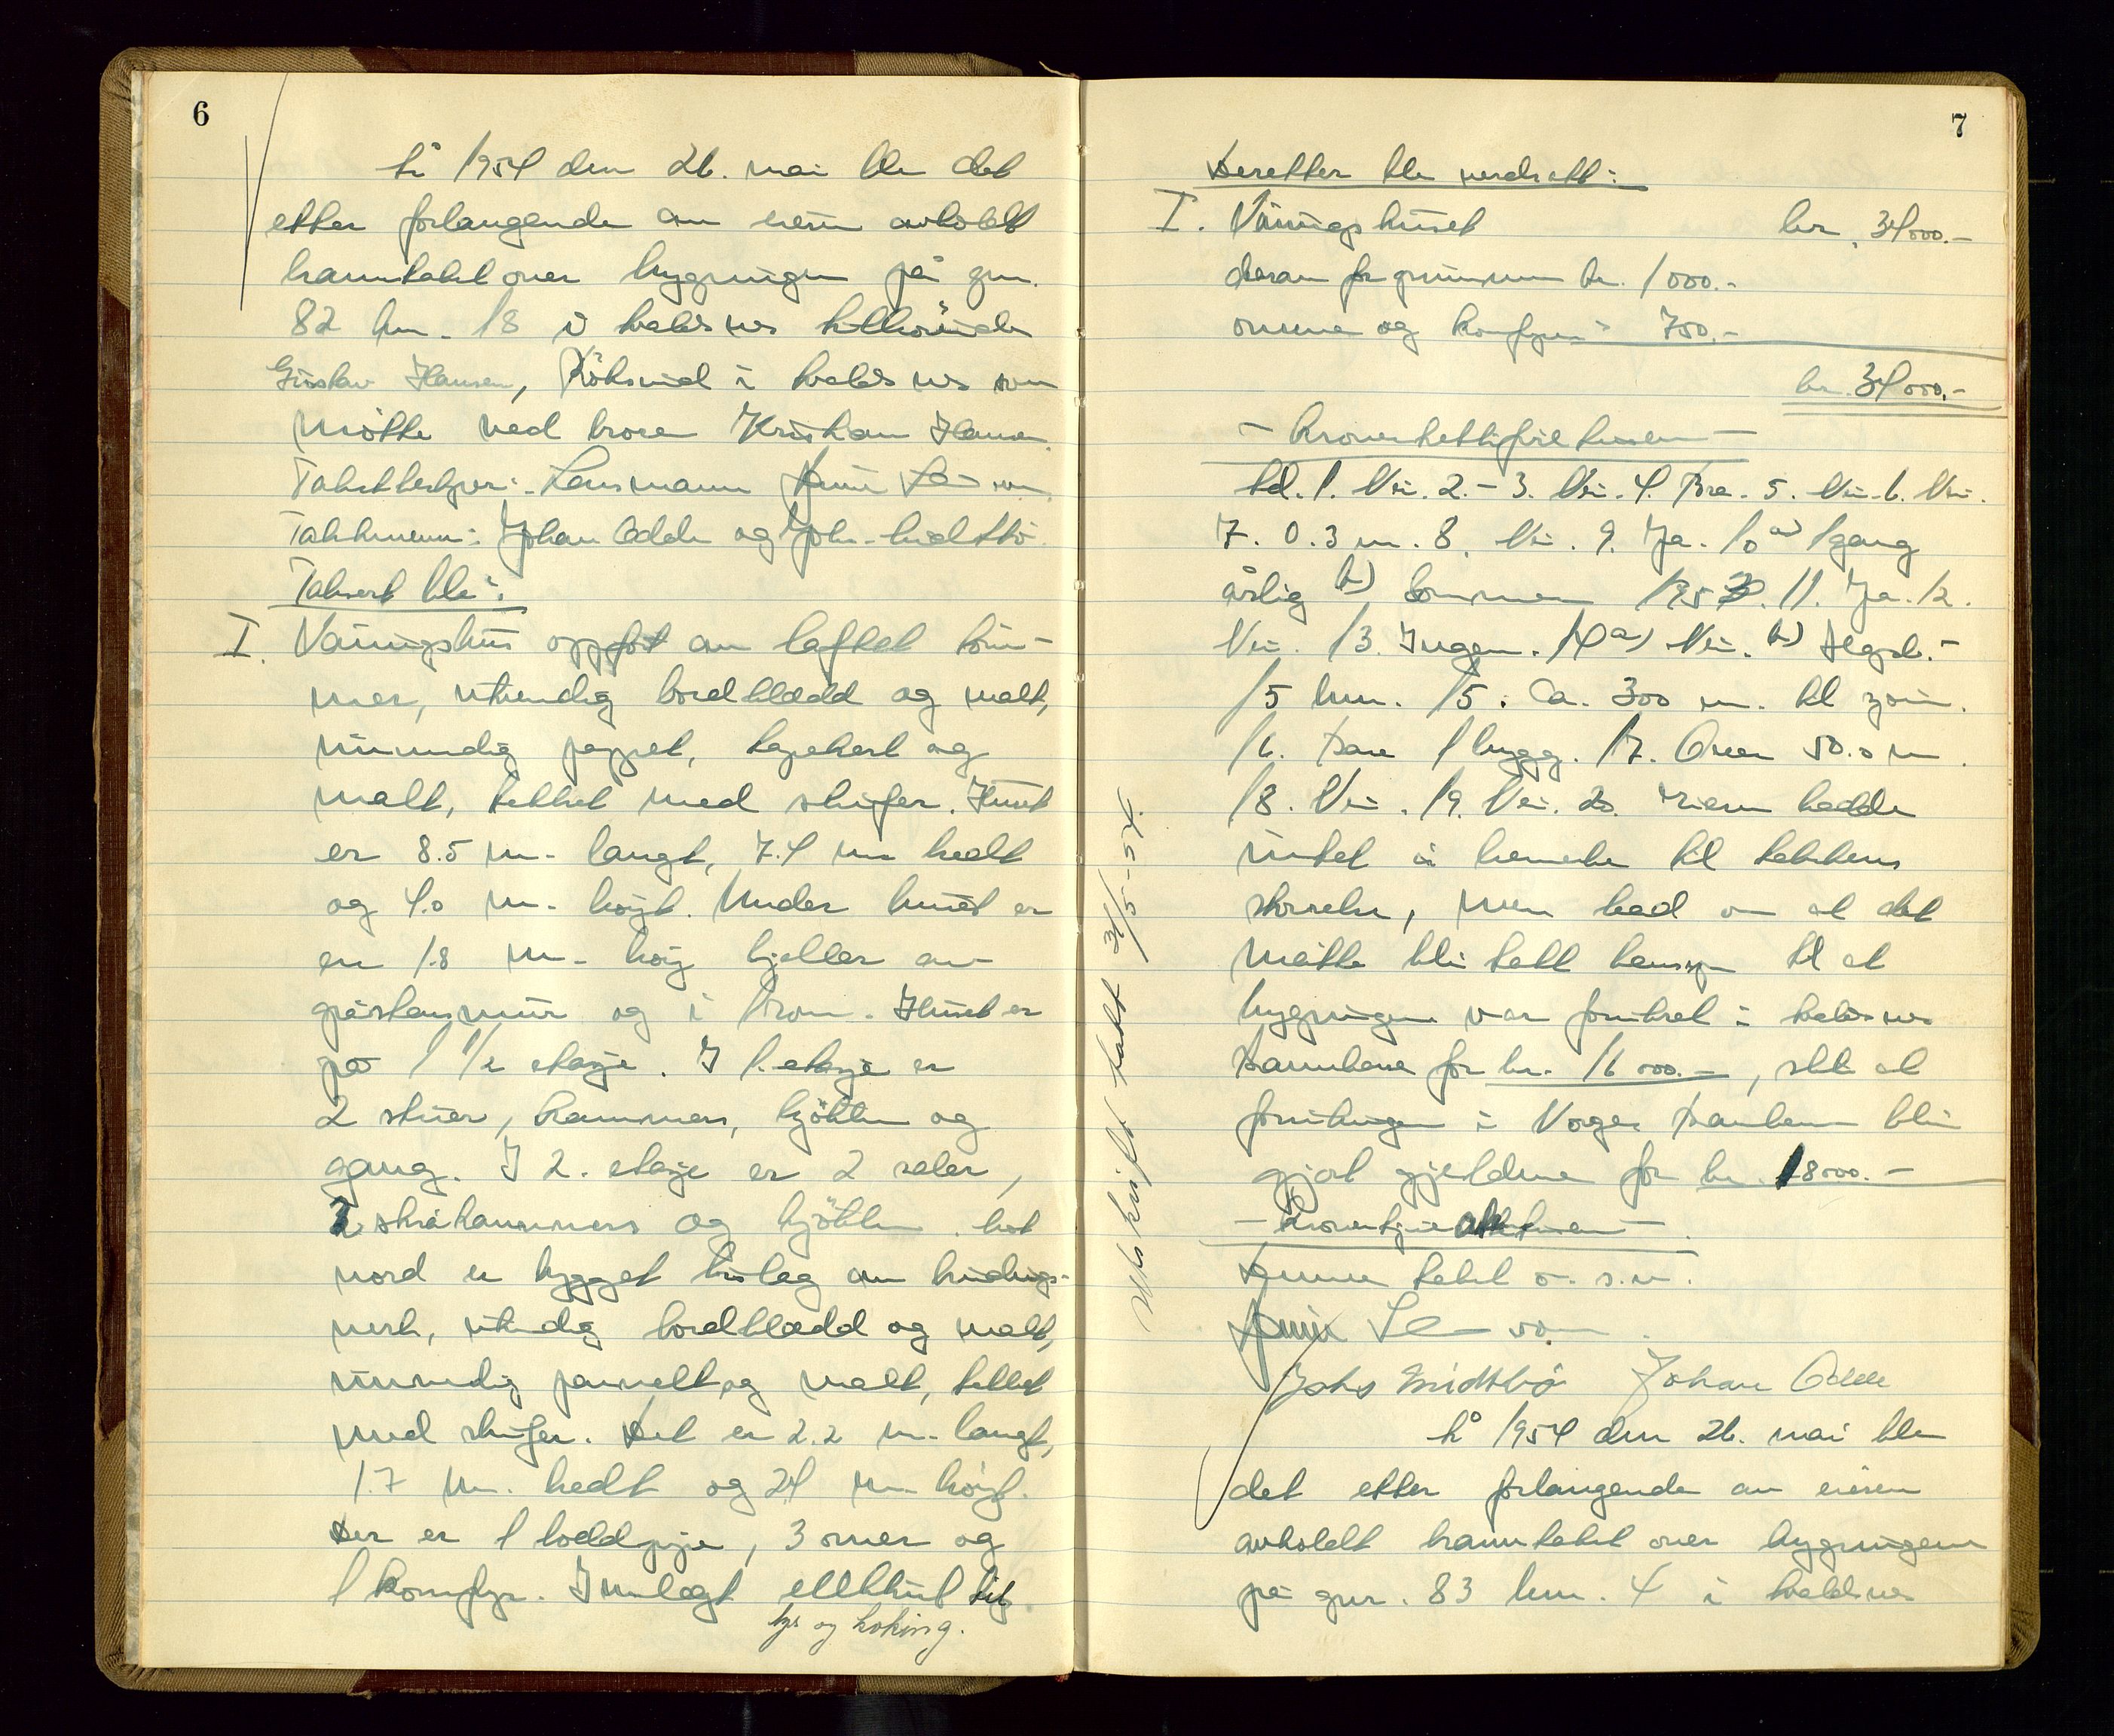 6
År 1954 den 26. mai ble det
etter forlangende av eieren avholdt
branntakst over bygningen på gnr.
82 bnr. 18 i Kvalsnes tilhørende
Gustav Hansen, i Kvalsnes som
møtte ved broren Kristian Hansen.
Takstbestyrer: Lensmann
Takstmenn: Johan Odde og Johs. Midtbø
Taksert ble:
I. Våningshus oppført av laftet tøm-
mer, utvendig bordkledd og malt,
innvendig pappet, tapetsert og
malt, tekket med skifer. Huset
er 8.5 m. langt, 7.4 m bredt
og 4.0 m. høyt. Under huset er
en 1.8 m. høy kjeller av
gråstensmur og i 1 rom. Huset er
på 1 1/2 etasje. I 1. etasje er
2 stuer, kammers, kjøkken og
gang. I 2. etasje er 2 saler,
2 skråkammers og kjøkken. Mot
nord er bygget bislag av bindings-
verk, utvendig bordkledd og malt,
innvendig panelt og malt, tekket
med skifer. Det er 2.2 m. langt,
1.7 m. bredt og 2.4 m høyt.
Der er 1 loddpipe, 3 ovner og
1 komfyr. Innlagt elektrisk til
lys og koking.
7
Deretter ble verdsatt:
I. Våningshuset kr. 34000.-
derav for grunnmur kr. 1000.-
ovner og komfyr " 700.-
kr. 34000.-
- Brannbestigelsen -
Ad. 1. Nei. 2. - 3. Nei. 4. Bra. 5. Nei. 6. Nei.
7. 0.3 m. 8. Nei. 9. Ja. 10 a) 1 gang
årlig b) Sommeren 1953. 11. Ja. 12.
Nei. 13. Ingen. 14 a) Nei. b)
15 km. 15: Ca. 300 m. til sjøen.
16. Bare 1 bygg. 17. Over 50.0 m.
18. Nei. 19. Nei. 20. Eieren hadde
intet å bemerke til takstens
størrelse, men bad om at det
måtte bli tatt hensyn til at
bygningen var forsikret i Kvalsnes
branntakst for kr. 16000.-, slik at
forsikringen i Norges Brannkasse blir
gjort gjeldene for kr. 18000.-

Denne takst o.s.v.

Johs Midtbø Johan Odde
År 1954 den 26. mai ble
det etter forlangende av eieren
avholdt branntakst over bygningen
på gnr. 83 bnr. 4 i Kvalsnes
Utskrift sendt 31/5-54.